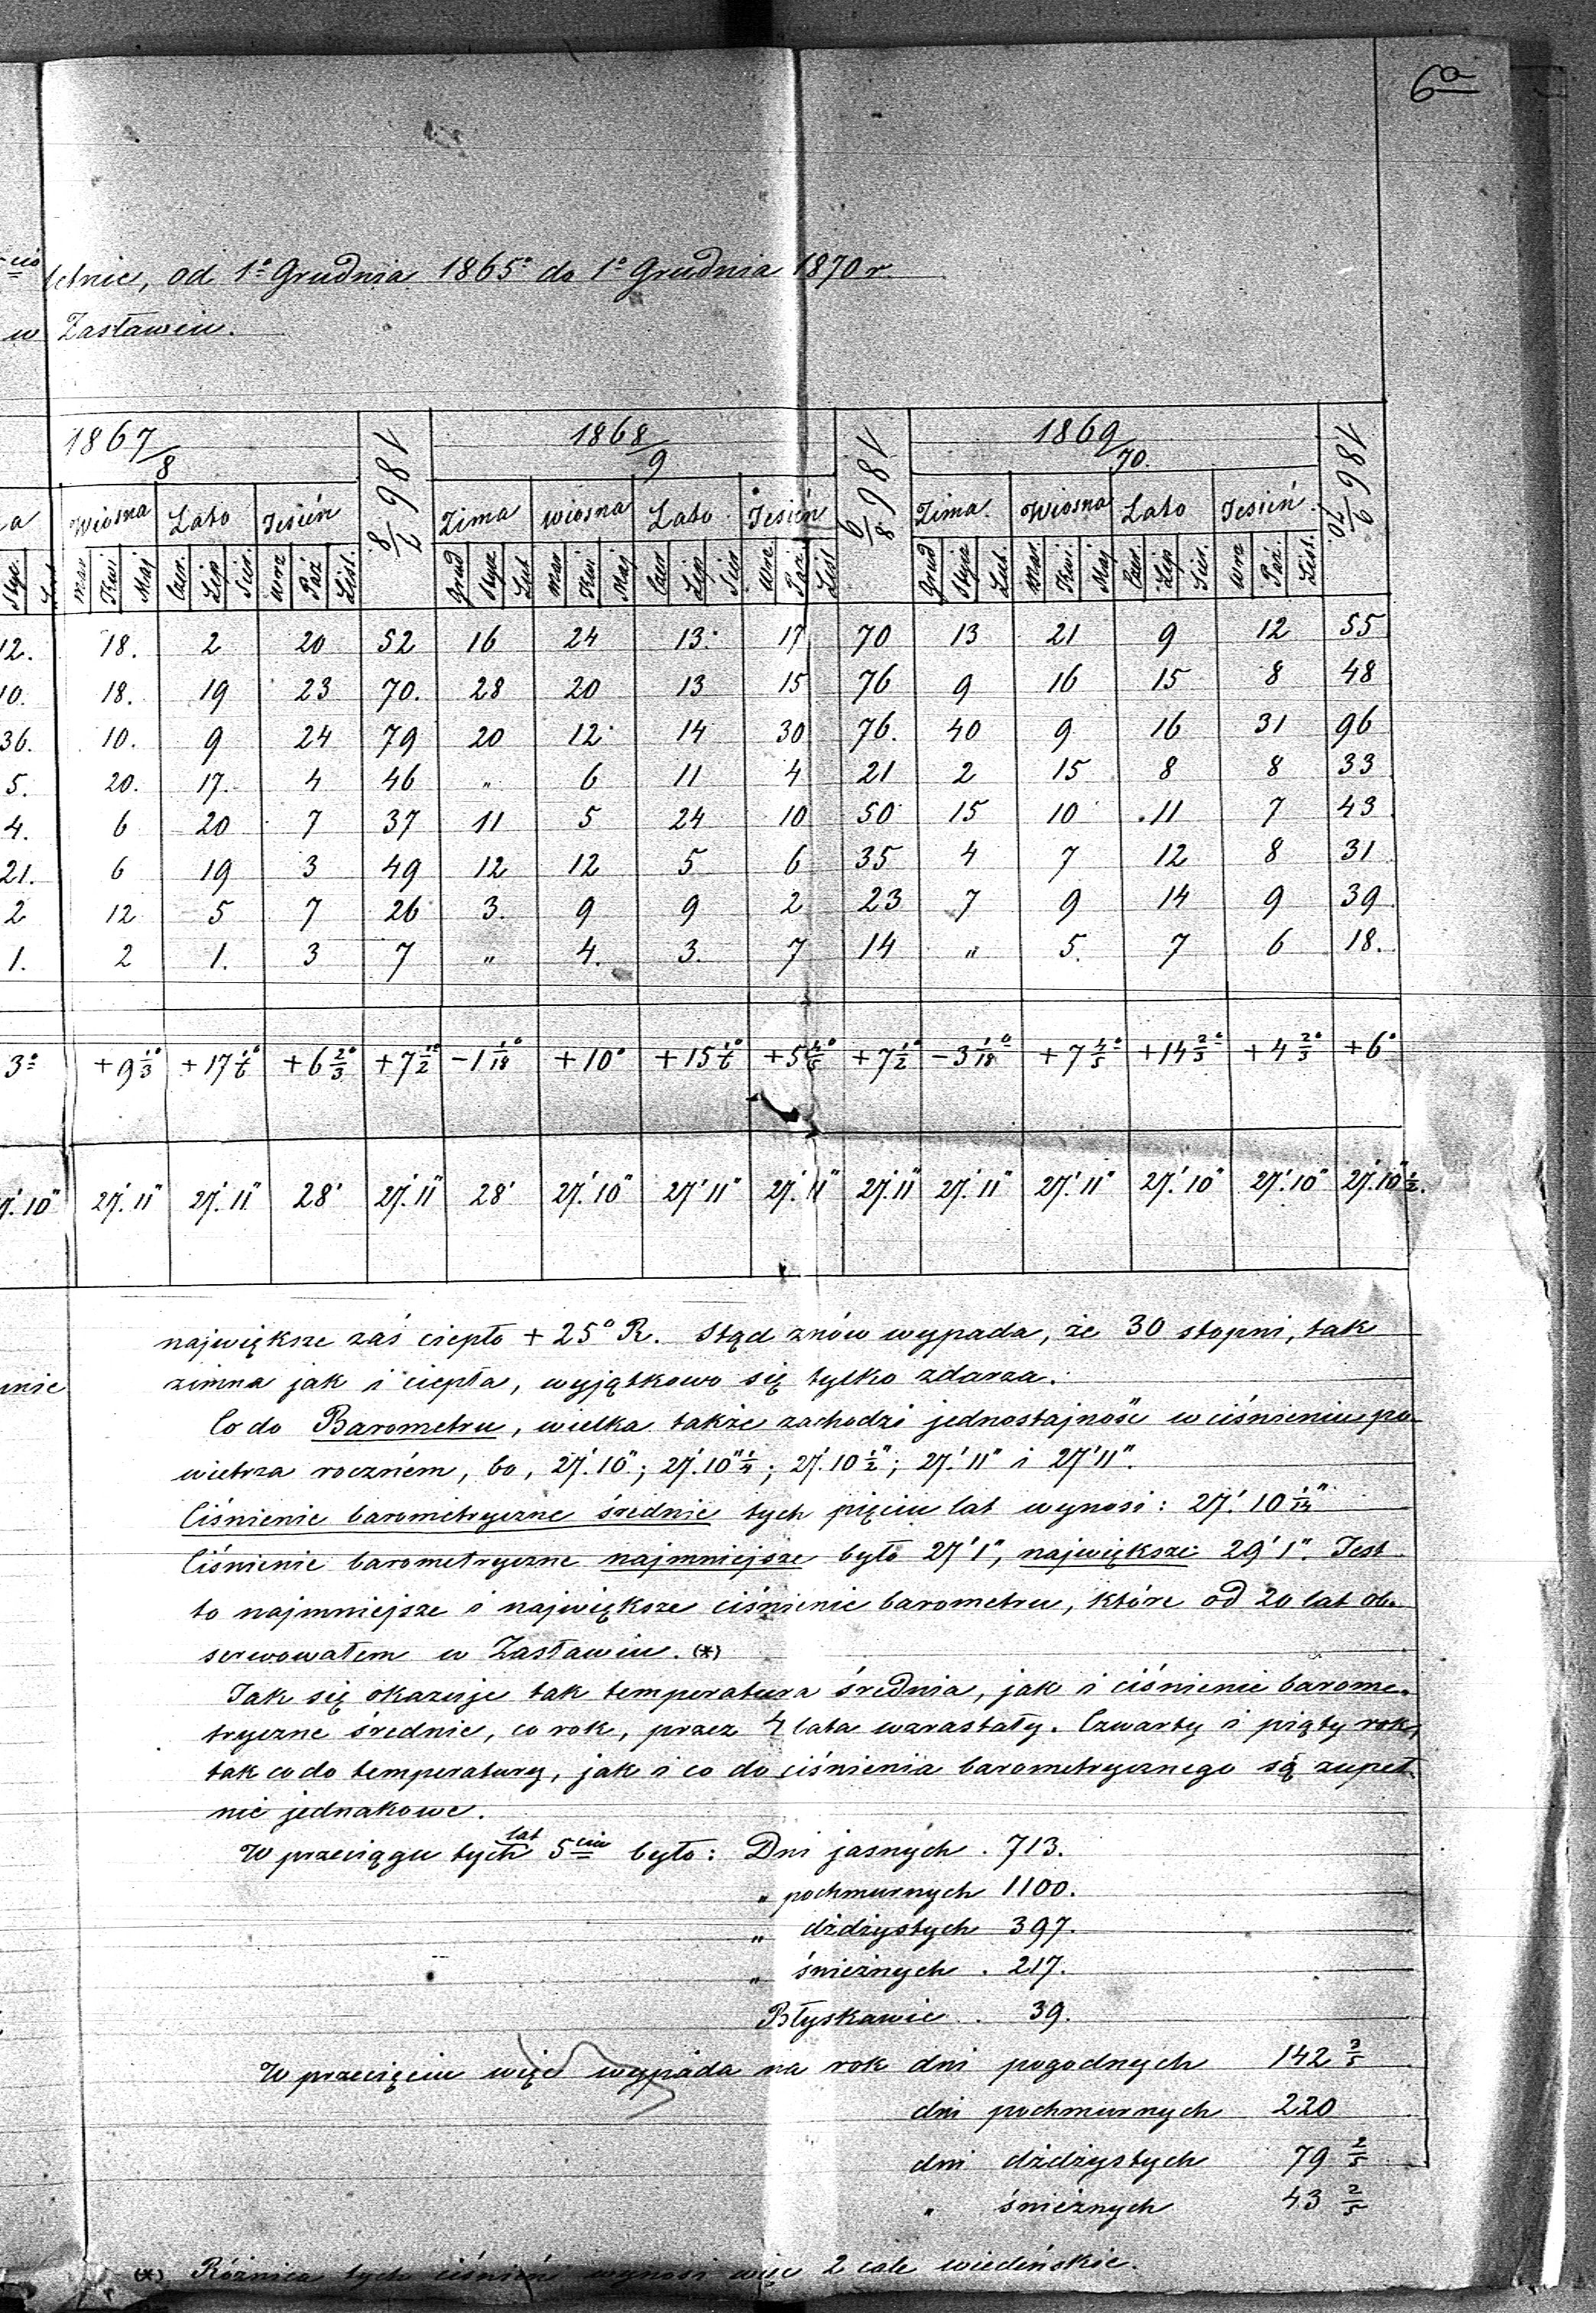 6a
letnie, od 1o Grudnia 1865o do 1o Grudnia 1870 r.
w Zasławiu.
1867/8 1867/8 1868/9 1868/9 1869/70. 1869/70
a Wiosna Lato Jesień Zima wiosna Lato Jesień Zima. Wiosna Lato Jesień.
Sty. Mar. Kwi. Maj Czer. Lip. Sier. Wrz Paź List. Grud Stycz Lut Mar Kwi Maj Czer Lip. Sier. Wrz. Paź. List Grud Stycz Lut. Mar. Kwi. Maj Czer. Lip. Sier. Wrz Paź. List.
12. 18. 2 20 52 16 24 13. 17 70 13 21 9 12 55
10. 18. 19 23 70. 28 20 13 15 76 9 16 15 8 48
36. 10. 9 24 79 20 12 14 30 76. 40 9 16 31 96
5. 20. 17. 4 46 " 6 11 4 21 2 15 8 8 33
4. 6 20 7 37 11 5 24 10 50 15 10 11 7 43
21. 6 19 3 49 12 12 5 6 35 4 7 12 8 31
2 12 5 7 26 3. 9 9 2 23 7 9 14 9 39
1. 2 1. 3 7 " 4. 3. 7 14 " 5. 7 6 18.
3° +9 1/3° +17 1/6° +6 2/3° +7 1/2° -1 1/18° +10° +15 1/6° +5 4/5° +7 1/2° -3 1/18° +7 4/5° +14 2/3° +4 2/3° +6°
27'.10" 27'.11" 27'.11" 28' 27'.11" 28' 27'.10" 27'11" 27'.11" 27'.11 27'.11" 27'.11" 27'.10" 27'.10" 27'.10" 1/2.
największe zaś ciepło + 25° R. Stąd znów wypada, że 30 stopni, tak
nie zimna jak i ciepła, wyjątkowo się tylko zdarza.
Co do Barometru, wielka także zachodzi jednostajność w ciśnieniu po-
wietrza roczném, bo, 27'.10"; 27'.10" 1/4; 27'.10 1/2"; 27'.11" i 27'11".
Ciśnienie barometryczne średnie tych pięciu lat wynosi: 27'.10 1/14"
Ciśnienie barometryczne najmniejsze było 27'1", największe 29'1". Jest
to najmniejsze i największe ciśnienie barometru, które od 20 lat ob-
serwowałem w Zasławiu. (*)
Jak się okazuje tak temperatura średnia, jak i ciśnienie barome-
tryczne średnie, co rok, przez 4 lata wzrastały. Czwarty i piąty rok,
tak co do temperatury, jak i co do ciśnienia barometrycznego są zupeł-
nie jednakowe.
W przeciągu tych lat 5ciu było: Dni jasnych . 713.
" pochmurnych 1100.
" dżdżystych 397.
" śnieżnych . 217.
Błyskawic . 39.
W przecięciu więc wypada na rok dni pogodnych 142 3/5
dni pochmurnych 220
dni dżdżystych 79 2/5
" śnieżnych 43 2/5
(*) Różnica tych ciśnień wynosi więc 2 cale wiedeńskie.